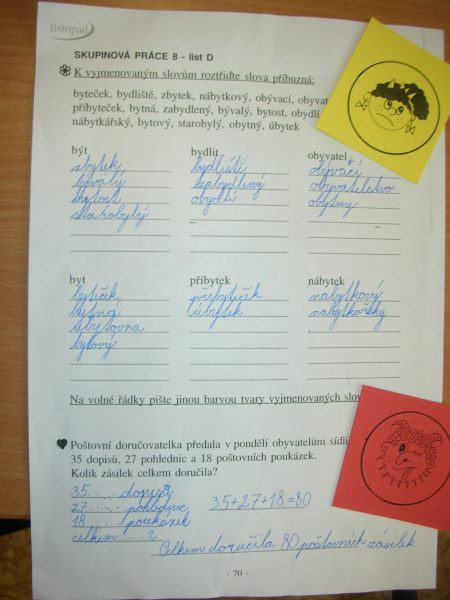 listopad
SKUPINOVÁ PRÁCE 8 - list D
K vyjmenovaným slovům roztřiďte slova příbuzná:
byteček, bydliště, zbytek, nábytkový, obývací, obyvat
příbyteček, bytná, zabydlený, bývalý, bytost, obydlí
nábytkářský, bytový, starobylý, obytný, úbytek
být bydlit obyvatel
zbytek bydliště obývací
bývalý zabydlený obyvatelstvo
bytost obydlí obytny
starobylý
byt příbytek nábytek
byteček příbyteček nabytkový
bytná úbytek nabytkařský
ubytovna
bytový
Na volné řádky pište jinou barvou tvary vyjmenovaných slov
Poštovní doručovatelka předala v pondělí obyvatelům sídli
35 dopisů, 27 pohlednic a 18 poštovních poukázek.
Kolik zásilek celkem doručila?
35 ..... dopisů
27 ....... pohlednic 35+27+18=80
18 ....... poukázek
celkem ....... ?
Celkem doručila 80 poštovních zásilek
- 70 -